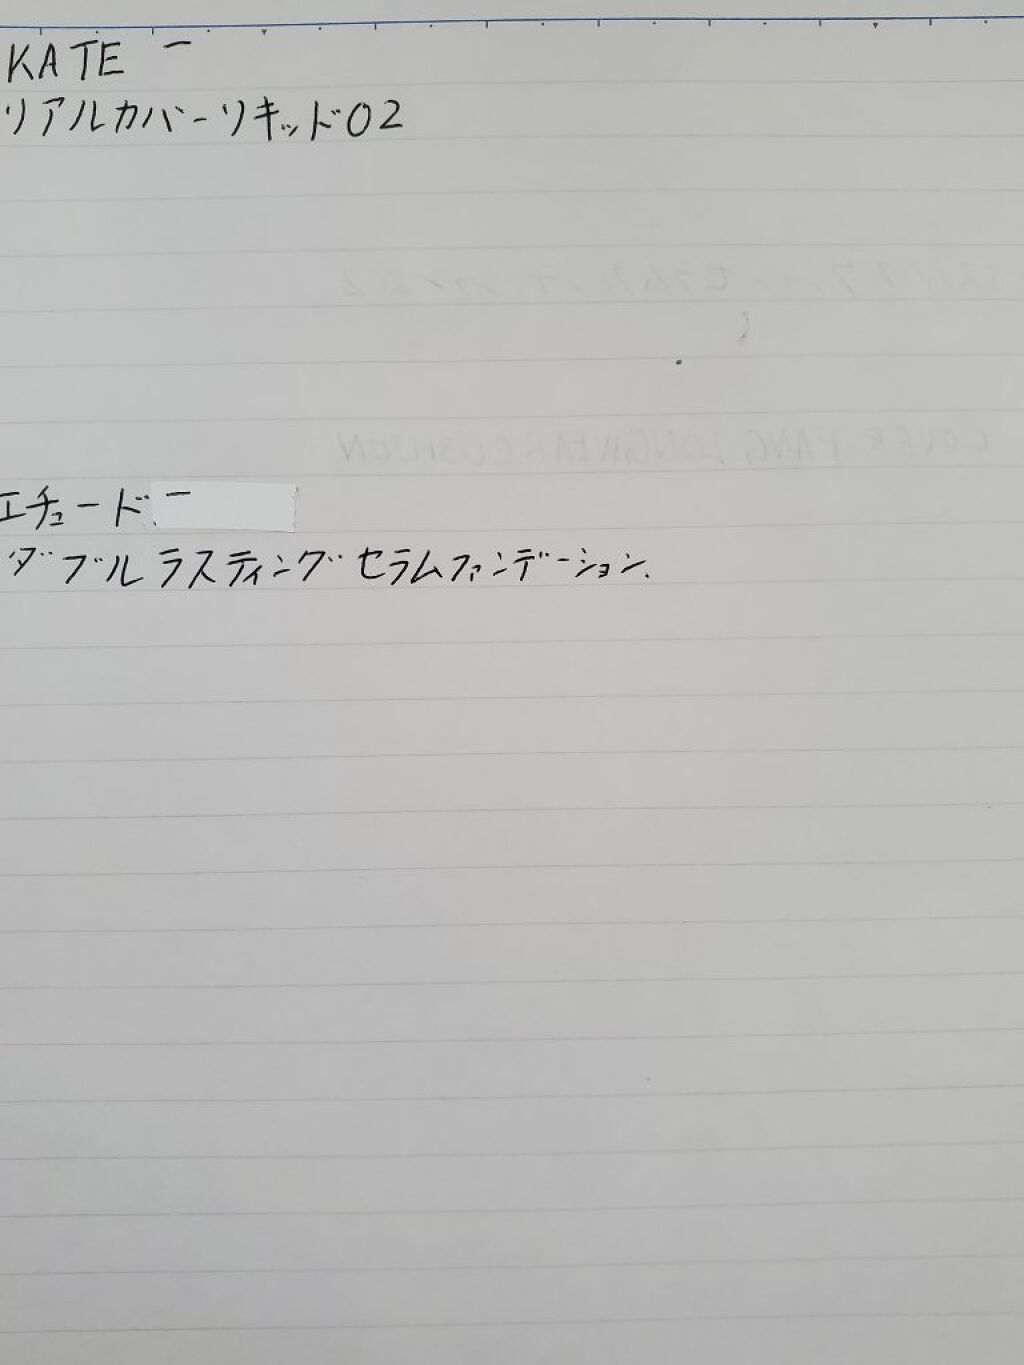 KATE ー
リアルカバーリキッド02
エチュード ー
ダブルラスティングセラムファンデーション.